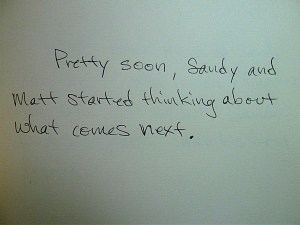 Pretty soon, Sandy and
Matt started thinking about
what comes next.